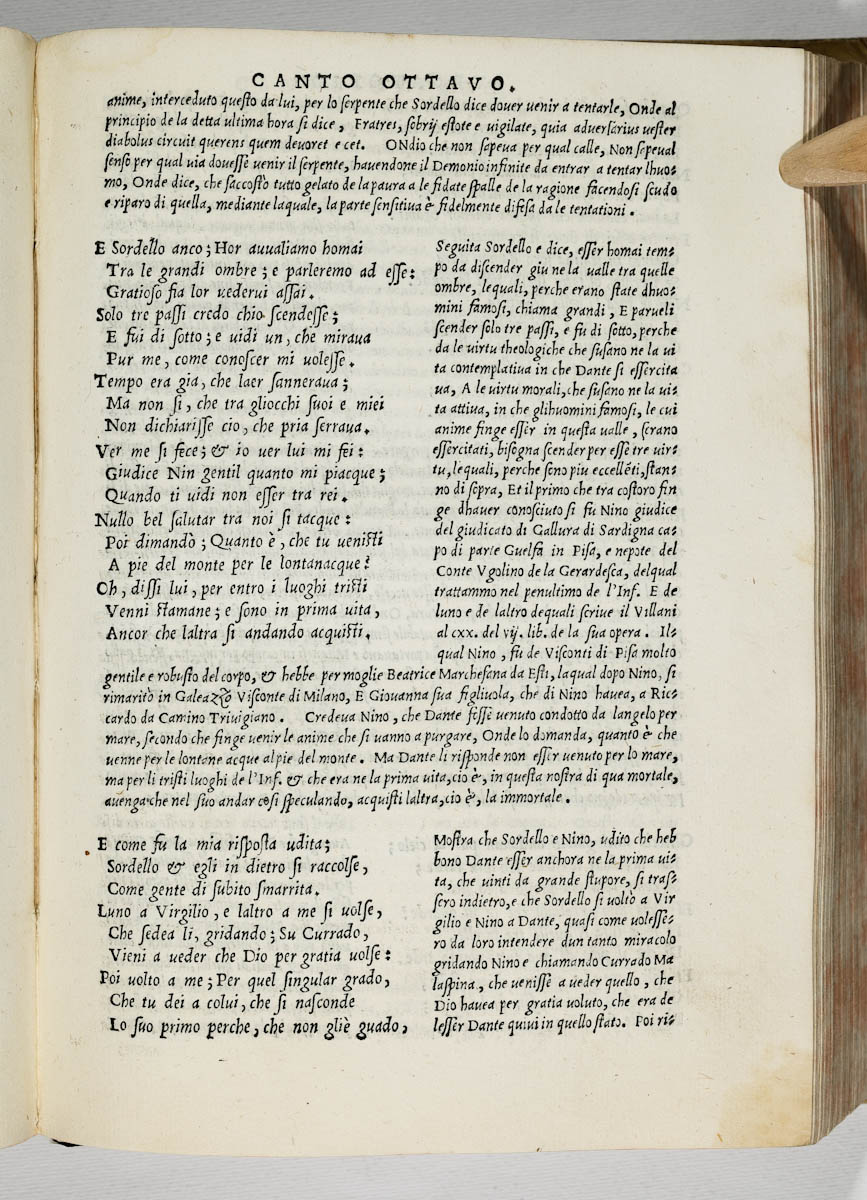 CANTO OTTAVO.
anime, interceduto questo da lui, per lo serpente che Sordello dice dover venir a tentarle, Onde al
principio de la detta ultima hora si dice, Fratres, sobrij estote e uigilate, quia aduersarius uester
diabolus circuit querens quem deuoret e cet. ONdio che non sapeua per qual calle, Non sapeual
senso per qual uia douesse uenir il serpente, hauendone il Demonio infinite da entrar a tentar lhuo=
mo, Onde dice, che saccostò tutto gelato de la paura a le fidate spalle de la ragione facendosi scudo
e riparo di quella, mediante laquale, la parte sensitiua è fidelmente difesa da le tentationi.
E Sordello anco; Hor auualiamo homai
Tra le grandi ombre; e parleremo ad esse:
Gratioso fia lor uederui assai.
Solo tre passi credo chio scendesse;
E fui di sotto; e uidi un, che miraua
Pur me, come conoscer mi uolesse.
Tempo era gia, che laer sanneraua;
Ma non si, che tra gliocchi suoi e miei
Non dichiarisse cio, che pria serraua.
Ver me si fece; & io uer lui mi fei:
Giudice Nin gentil quanto mi piacque;
Quando ti uidi non esser tra rei.
Nullo bel salutar tra noi si tacque:
Poi dimandò; Quanto è, che tu uenisti
A pie del monte per le lontanacque?
Oh, dissi lui, per entro i luoghi tristi
Venni stamane; e sono in prima uita,
Ancor che laltra si andando acquisti.
Seguita Sordello e dice, esser homai tem=
po da discender giu ne la ualle tra quelle
ombre, lequali, perche erano state dhuo=
mini famosi, chiama grandi, E parueli
scender solo tre passi, e fu di sotto, perche
da le uirtu theologiche che susano ne la ui
ta contemplatiua in che Dante si essercita
ua, A le uirtu morali, che susano ne la ui=
ta attiua, in che glihuomini famosi, le cui
anime finge esser in questa ualle, serano
essercitati, bisogna scender per esse tre uir=
tu, lequali, perche sono piu eccellēti, stan=
no di sopra, Et il primo che tra costoro fin
ge dhauer conosciuto si fu Nino giudice
del giudicato di Gallura di Sardigna ca=
po di parte Guelfa in Pisa, e nepote del
Conte Vgolino de la Gerardesca, delqual
trattammo nel penultimo de l'Inf. E de
luno e de laltro dequali scriue il Villani
al cxx. del vij. lib. de la sua opera. Il=
qual Nino, fu de Visconti di Pisa molto
gentile e robusto del corpo, & hebbe per moglie Beatrice Marchesana da Esti, laqual dopo Nino, si
rimaritò in Galeazzo Visconte di Milano, E Giouanna sua figliuola, che di Nino hauea, a Ric=
cardo da Camino Triuigiano. Credeua Nino, che Dante fusse uenuto condotto da langelo per
mare, secondo che finge uenir le anime che si uanno a purgare, Onde lo domanda, quanto è che
uenne per le lontane acque al pie del monte. Ma Dante li risponde non esser uenuto per lo mare,
ma per li tristi luoghi de l'Inf. & che era ne la prima uita, cio è, in questa nostra di qua mortale,
auenga che nel suo andar cosi speculando, acquisti laltra, cio è, la immortale.
E come fu la mia risposta udita;
Sordello & egli in dietro si raccolse,
Come gente di subito smarrita.
Luno a Virgilio, e laltro a me si uolse,
Che sedea li, gridando; Su Currado,
Vieni a ueder che Dio per gratia uolse:
Poi uolto a me; Per quel singular grado,
Che tu dei a colui, che si nasconde
Lo suo primo perche, che non gliè guado,
Mostra che Sordello e Nino, udito che heb
bono Dante esser anchora ne la prima ui=
ta, che uinti da grande stupore, si tras=
sero indietro, e che Sordello si uoltò a Vir
gilio e Nino a Dante, quasi come uolesse=
ro da loro intendere dun tanto miracolo
gridando Nino e chiamando Currado Ma
laspina, che uenisse a ueder quello, che
Dio hauea per gratia uoluto, che era de
lesser Dante quiui in quello stato. Poi ri=